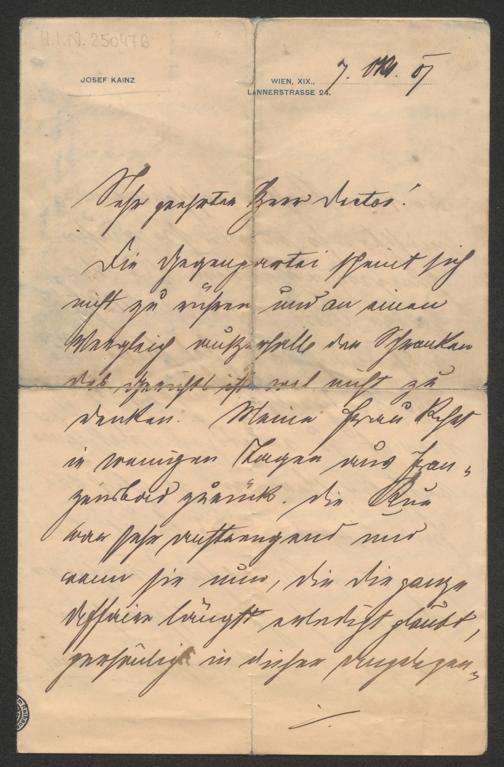 H.I.N. 250476
JOSEF KAINZ
WIEN, XIX.,
LANNERSTRASSE 24.
7. Okt. 07
Sehr geehrter Herr Doctor!
Die Gegenpartei scheint sich
nicht zu rühren und an einen
Vergleich außerhalb der Schranken
des Gerichts ist wol nicht zu
denken. Meine Frau kehrt
in wenigen Tagen aus Fran-
zensbad zurück. Die Kur
war sehr anstrengend und
wenn sie nun, die die ganze
Affaire längst erledigt glaubt,
persönlich in dieser Angelegen-